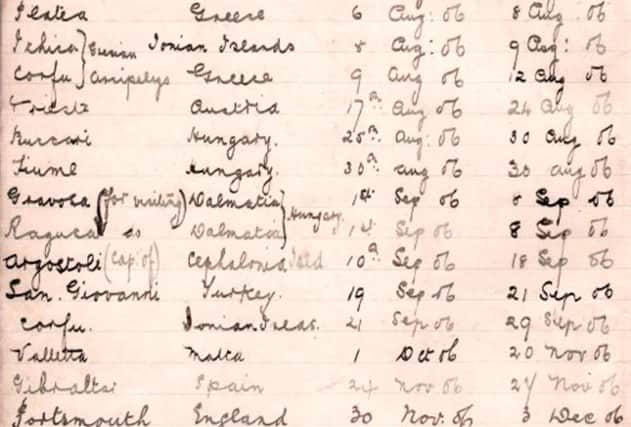 Platea Greece 6 Aug: 06 8 Aug 06
Ithica Ionian Islands 8 Aug: 06 9 Aug: 06
Corfu Greece 9 Aug 06 12 Aug 06
Trieste Austria 17th Aug 06 24 Aug 06
Buccari Hungary. 25th Aug: 06 30 Aug 06
Fiume Hungary. 30th Aug 06 30 Aug 06
Gravosa (for visiting) Dalmatia Hungary. 1st Sep 06 8 Sep 06
Ragusa do Dalmatia Sep 06 8 Sep 06
Argostoli (cap. of) Cephalonia Isld 10th Sep 06 18 Sep 06
San. Giovanni Turkey. 19 Sep 06 21 Sep 06
Corfu. Ionian Isds. 21 Sep 06 29 Sep 06
Valletta Malta 1 Oct 06 20 Nov 06
Gibraltar Spain 24 Nov 06 27 Nov 06
Portsmouth England 30 Nov. 06 3 Dec 06